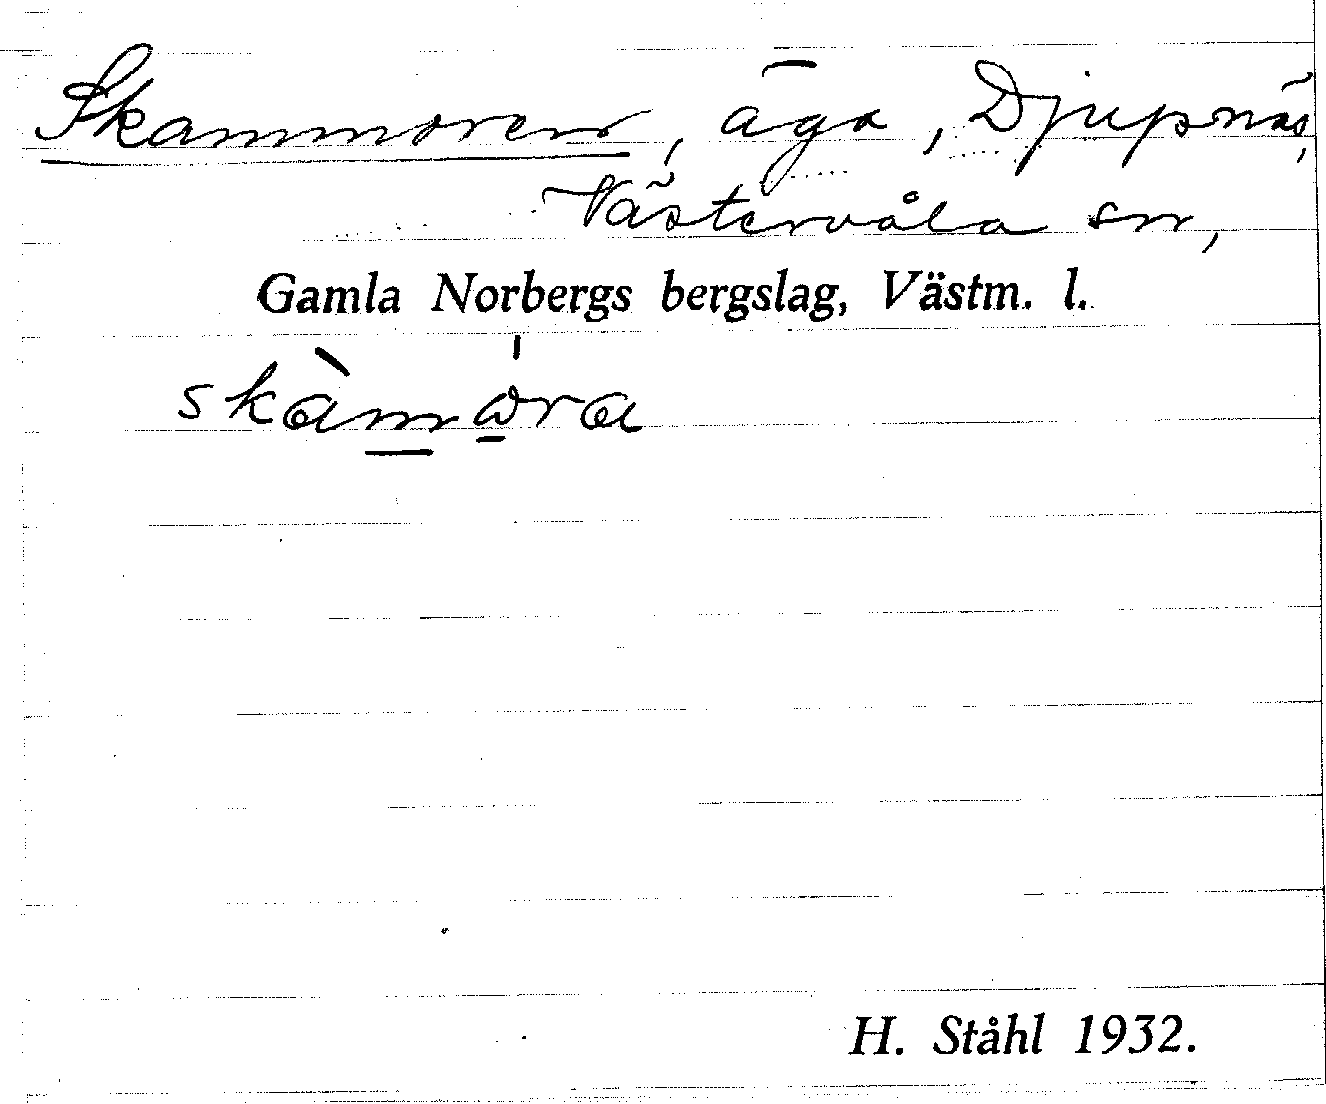 Skammoren, äga, Djupnäs,
Västervåla sn,
Gamla Norbergs bergslag, Västm. l.
skàmω̍ra
H. Ståhl 1932.